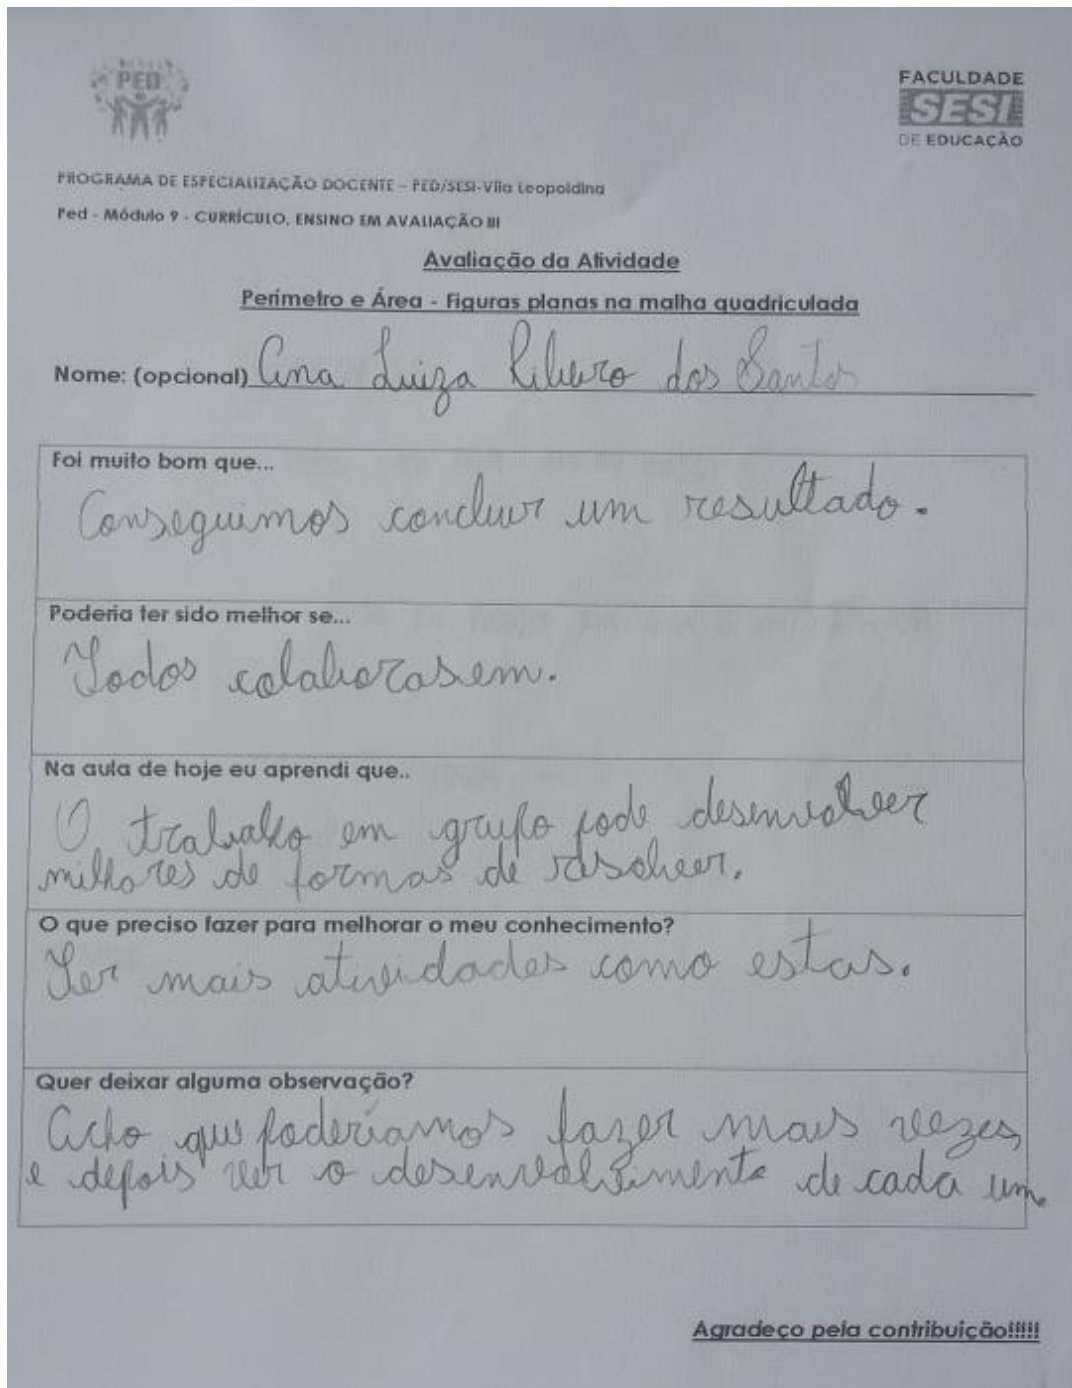 PED
FACULDADE
SESI
DE EDUCAÇÃO
PROGRAMA DE ESPECIALIZAÇÃO DOCENTE – PED/SESI-Vila Leopoldina
Ped - Módulo 9 - CURRÍCULO, ENSINO EM AVALIAÇÃO III
Avaliação da Atividade
Perímetro e Área - Figuras planas na malha quadriculada
Nome: (opcional) Ana Luiza Ribeiro dos Santos
Foi muito bom que...
Conseguimos concluir um resultado.
Poderia ter sido melhor se...
Todos colaborasem.
Na aula de hoje eu aprendi que..
O trabalho em grupo pode desenvolver
milhores de formas de resolver.
O que preciso fazer para melhorar o meu conhecimento?
Ter mais atividades como estas.
Quer deixar alguma observação?
Acho que poderíamos fazer mais vezes,
e depois ver o desenvolvimento de cada um.
Agradeço pela contribuição!!!!!